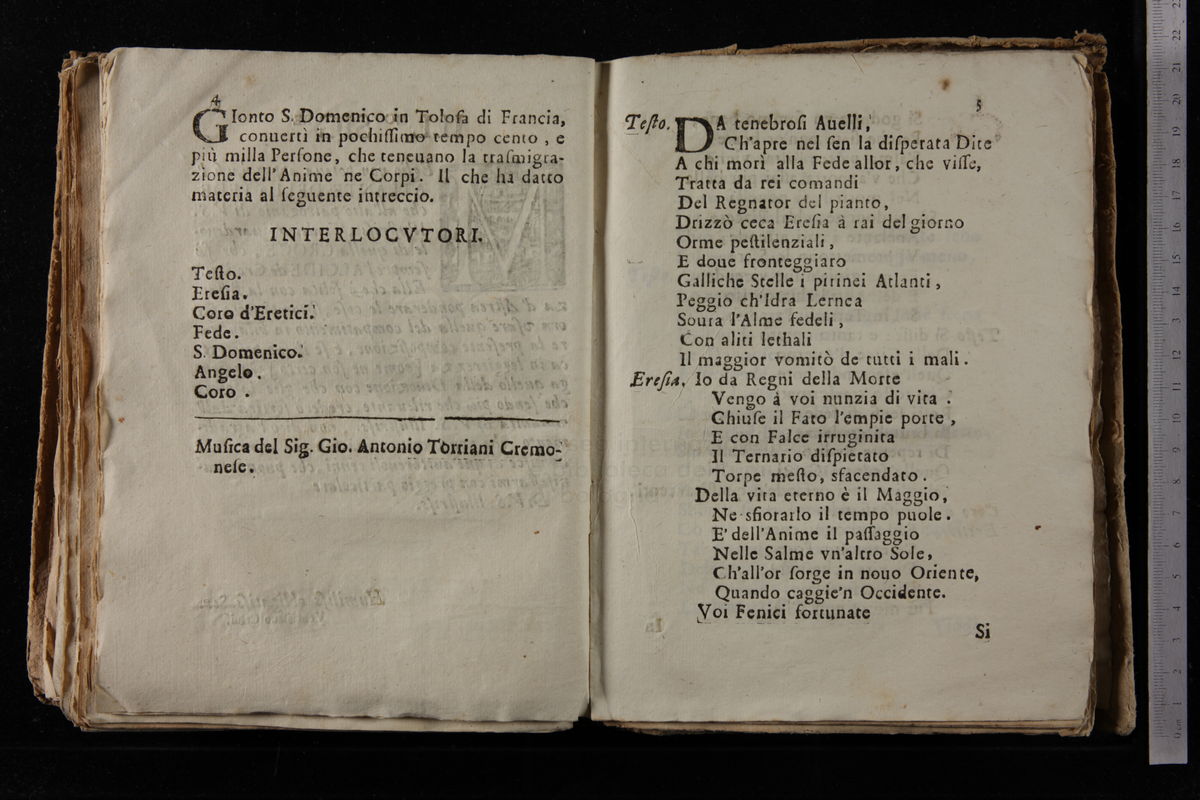 4
GIonto S. Domenico in Toloſa di Francia,
conuertì in pochiſſimo tempo cento, e
più milla Perſone, che teneuano la traſmigra-
zione dell'Anime ne Corpi. Il che ha datto
materia al ſeguente intreccio.
INTERLOCVTORI.
Teſto.
Ereſia.
Coro d'Eretici.
Fede.
S. Domenico.
Angelo.
Coro.
Muſica del Sig. Gio. Antonio Torriani Cremo-
neſe.
5
Teſto. DA tenebroſi Auelli,
Ch'apre nel ſen la diſperata Dite
A chi morì alla Fede allor, che viſſe,
Tratta da rei comandi
Del Regnator del pianto,
Drizzò ceca Ereſia à rai del giorno
Orme peſtilenziali,
E doue fronteggiaro
Galliche Stelle i pirinei Atlanti,
Peggio ch'Idra Lernea
Soura l'Alme fedeli,
Con aliti lethali
Il maggior vomitò de tutti i mali.
Ereſia. Io da Regni della Morte
Vengo à voi nunzia di vita.
Chiuſe il Fato l'empie porte,
E con Falce irruginita
Il Ternario diſpietato
Torpe meſto, sfacendato.
Della vita eterno è il Maggio,
Ne sfiorarlo il tempo puole.
E' dell'Anime il paſſaggio
Nelle Salme vn'altro Sole,
Ch'all'or ſorge in nouo Oriente,
Quando caggie'n Occidente.
Voi Fenici fortunate
Si